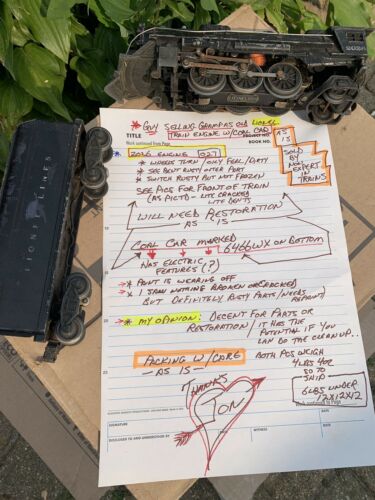 LIONEL LINES
* GUY SELLING GRAMPAS OLD LIONEL
TITLE
TRAIN ENGINE W/COAL CAR
Work continued from Page
BOOK NO.
AS
IS
SOLD
BY
NON
EXPERT
IN
TRAINS
* 2026 ENGINE 027
* WHEELS TURN / ONLY FEEL / DIRTY
* SEE BENT RUSTY OTHER PART
* SWITCH RUSTY BUT NOT FROZEN
SEE PICS FOR FRONT OF TRAIN
(AS PICTD) - LITE CRACKED
LITE DENTS
WILL NEED RESTORATION
— AS IS —
COAL CAR MARKED
6466WX ON BOTTOM
HAS ELECTRIC
FEATURES (?)
* PAINT IS WEARING OFF
* I SAW NOTHING BROKEN OR CRACKED
BUT DEFINITELY RUSTY PARTS/NEEDS
REPAINT
* MY OPINION: DECENT FOR PARTS OR
RESTORATION / IT HAS THE
POTENTIAL IF YOU
CAN DO THE CLEAN UP..
PACKING W/CARE
— AS IS —
BOTH PCS WEIGH
4LBS 4OZ
SO TO
SHIP
6LBS UNDER
12X12X12
Work continued to Page
THANKS
JON
SIGNATURE
DATE
DISCLOSED TO AND UNDERSTOOD BY
DATE
WITNESS
DATE